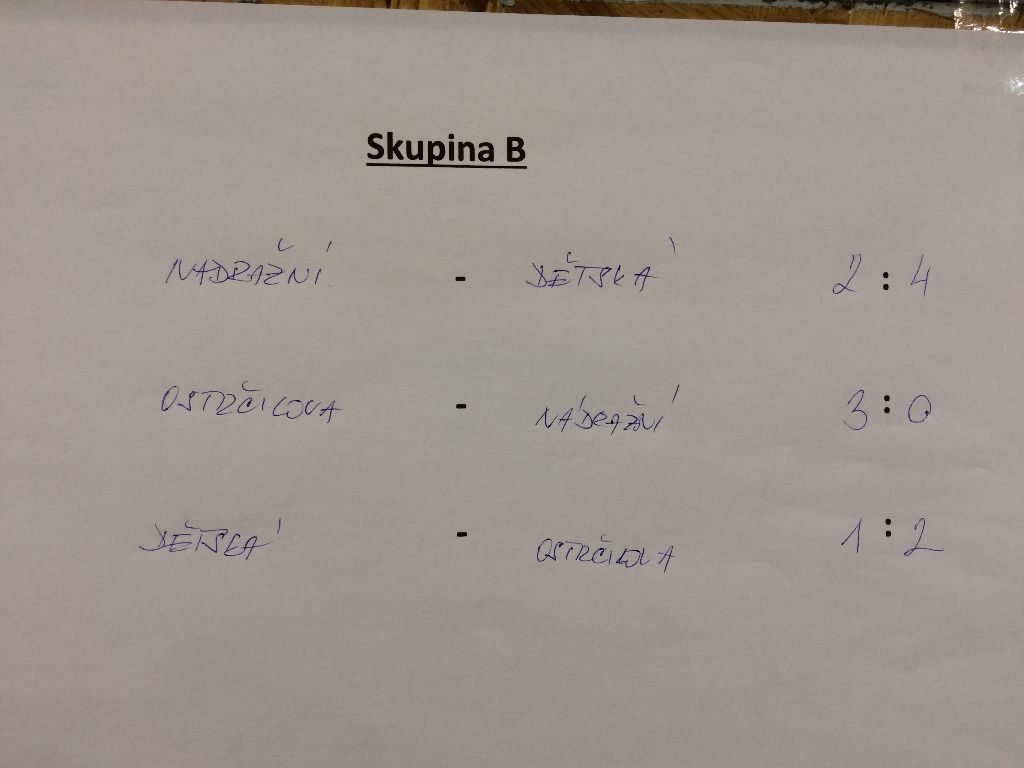 Skupina B
NADRAŽNÍ - DĚTSKÁ 2 : 4
OSTRČILOVA - NÁDRAŽNÍ 3 : 0
DĚTSKÁ - OSTRČILOVA 1 : 2